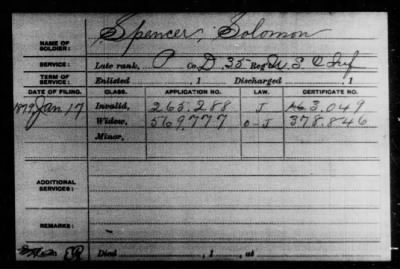 NAME OF SOLDIER: Spencer, Solomon
SERVICE: Late rank, P Co. D, 35 Reg't U. S. C Inf
TERM OF SERVICE: Enlisted , 1 Discharged , 1
DATE OF FILING. CLASS. APPLICATION NO. LAW. CERTIFICATE NO.
1879 Jan 17 Invalid, 265.288 J 163.049
Widow, 569.777 O-J 378.846
Minor,
ADDITIONAL SERVICES:
REMARKS:
Died , 1 , at